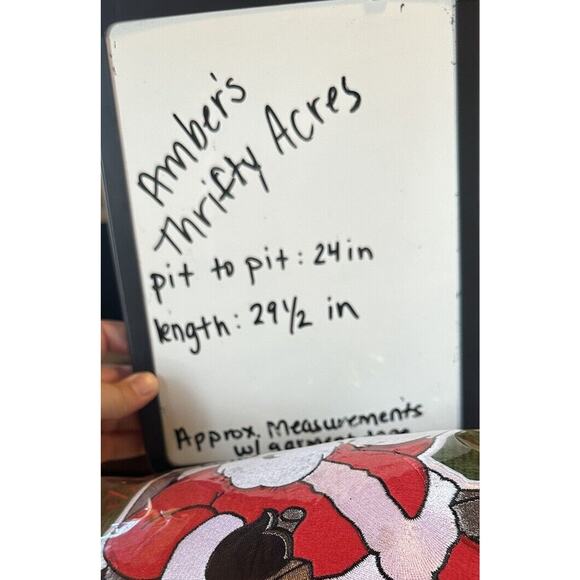 Amber's
Thrifty Acres
pit to pit: 24 in
length: 29 1/2 in
Approx. Measurements
w/ garment